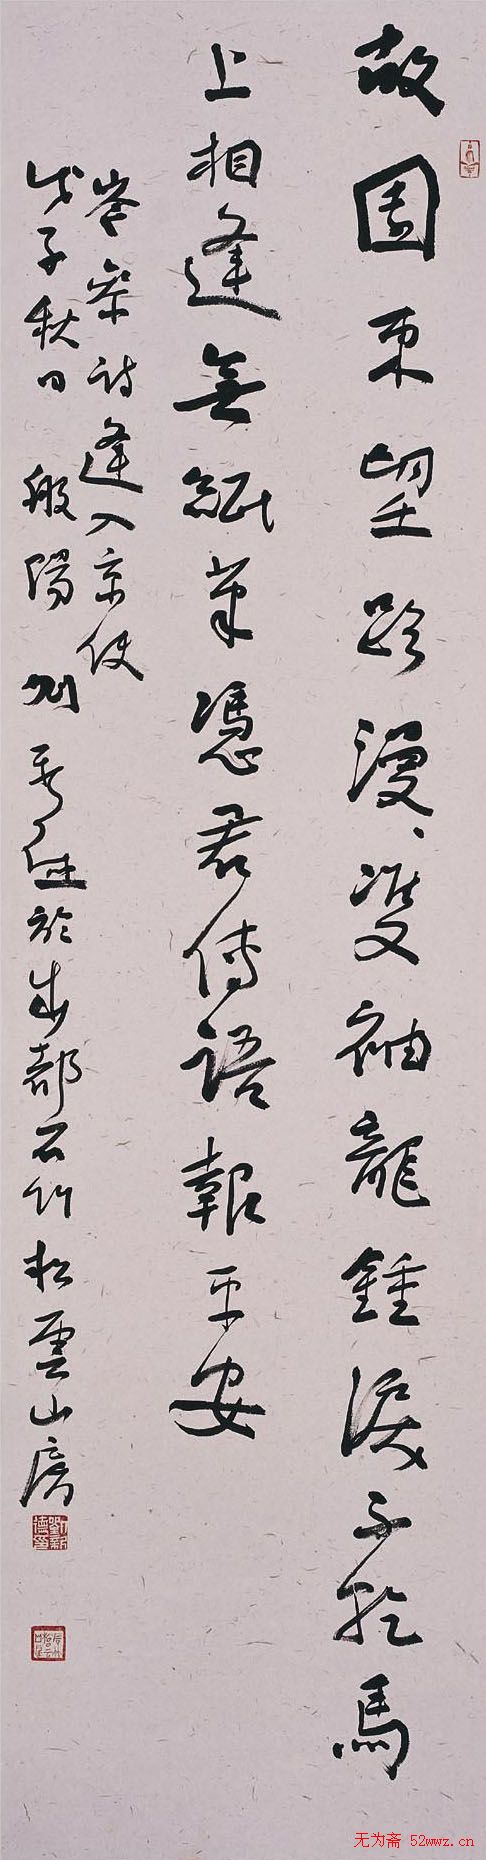 故園東望路漫漫雙袖龍鍾淚不乾馬
上相逢無紙筆憑君傳語報平安
岑參詩逢入京使
戊子秋日般陽劉新德於成都石竹松雲山房
劉新德印
无为斋 52wwz.cn